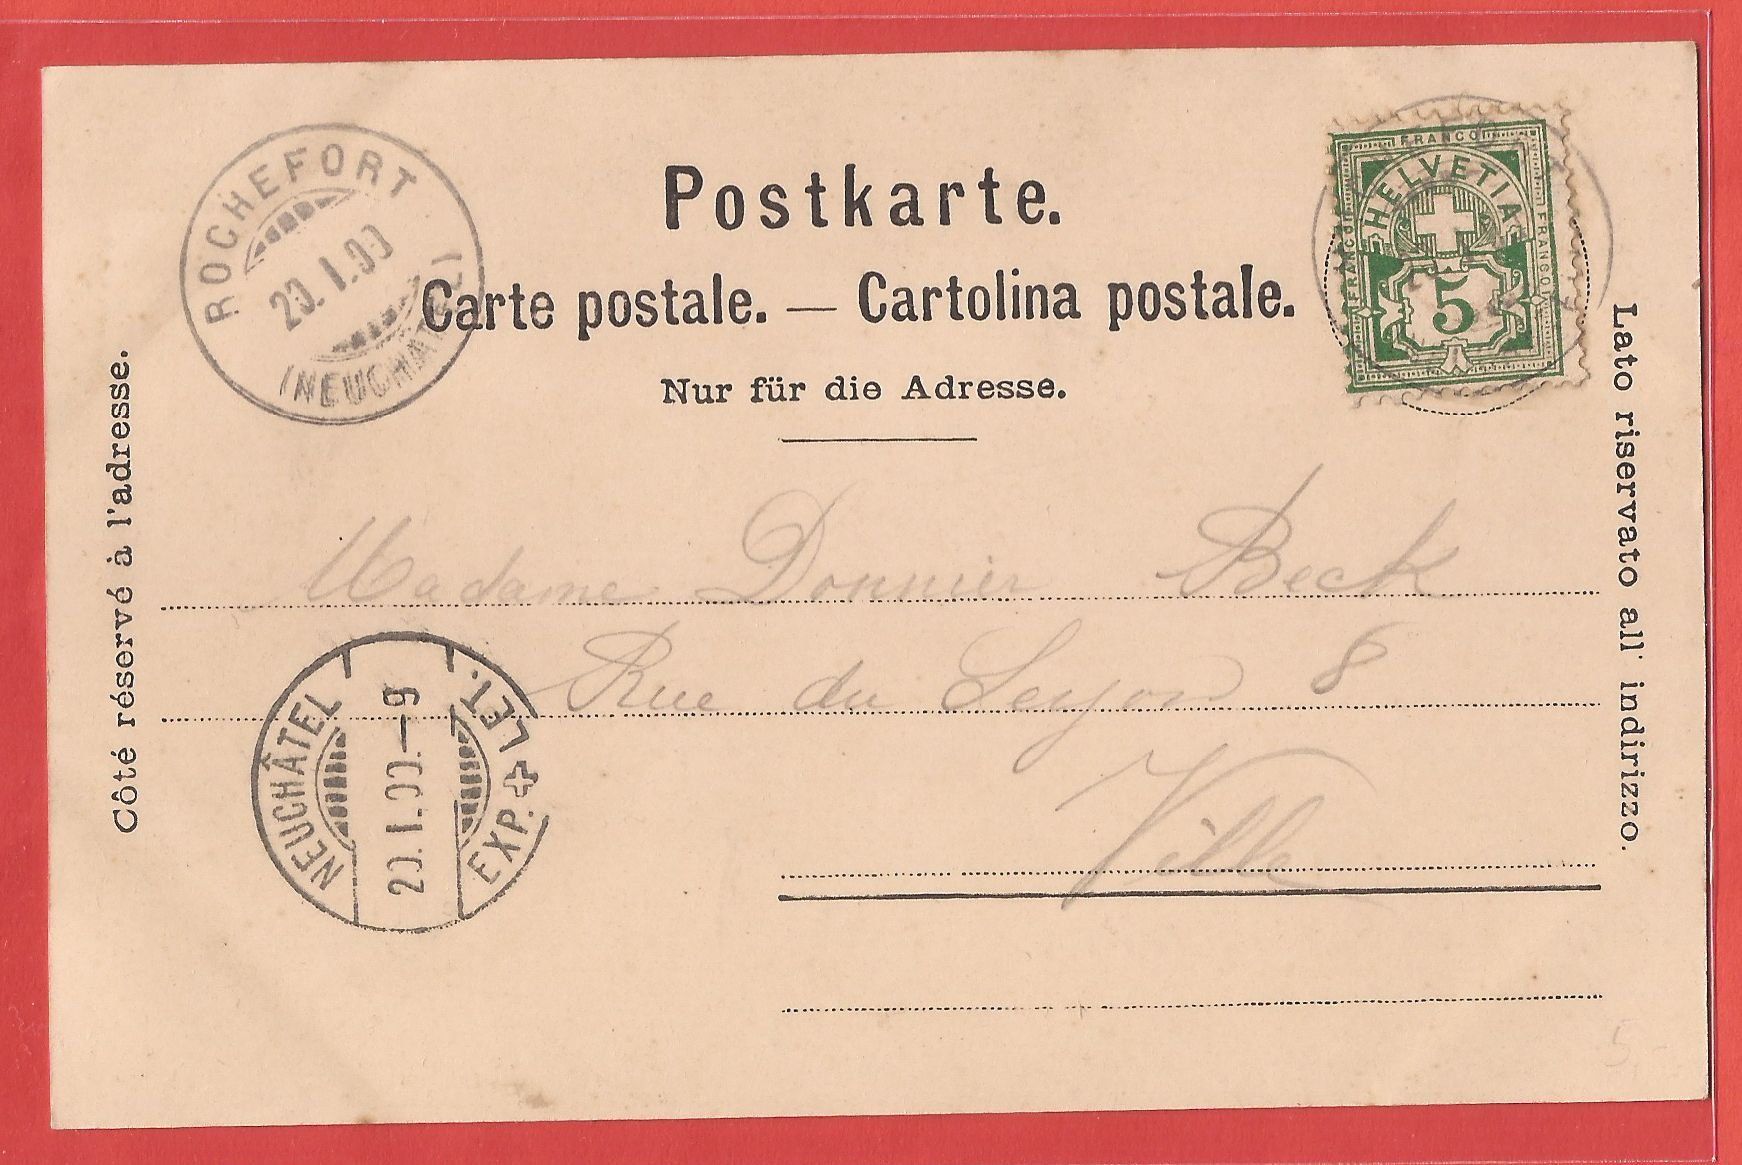 ROCHEFORT
20.I.00
(NEUCHATEL)
Postkarte.
Carte postale. — Cartolina postale.
Nur für die Adresse.
FRANCO
FRANCO
FRANCO
HELVETIA
5
Côté réservé à l'adresse.
Lato riservato all' indirizzo.
Madame Donnier Beck
Rue du Seyon 8
Ville
NEUCHÂTEL
20.I.00.-9
EXP. + LET.
5.-